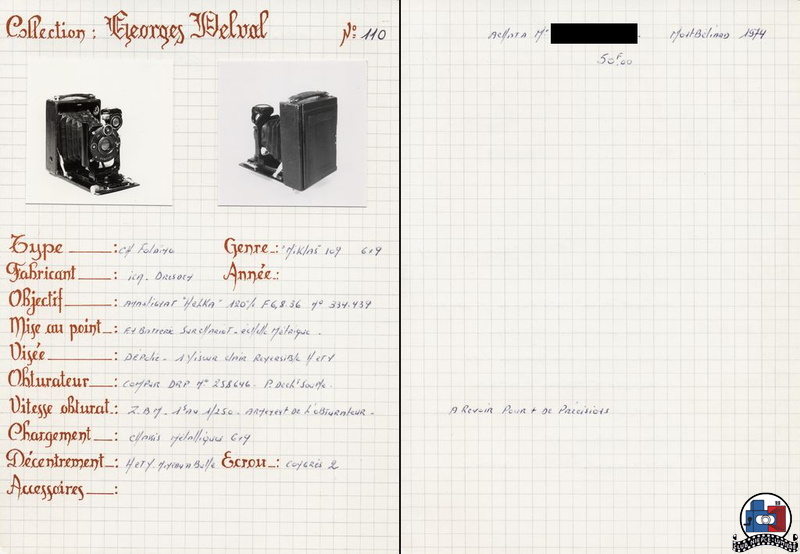 Collection : Georges Delval Nº: 110
Type : CH Folding Genre : "Niklas" 109 6+9
Fabricant : ica. Dresden Année :
Objectif : Anastigmat "Helka" 120% F 6,8.36 Nº 334.439
Mise au point : Et Batterie Sur chariot - échelle Métrique -
Visée : Dépolie - 1 Viseur clair Reversible H et V
Obturateur : Compur DRP Nº 258646 - P. Decht Souple -
Vitesse obturat : Z.B.M - 1s au 1/250 - Armement de L'obturateur -
Chargement : chassis Métalliques 6+9
Décentrement : H et V Ecrou : Congrès 2
Accessoires :
Achata Mr Montbéliard 1974
50F.00
A Revoir Pour + de Précisions